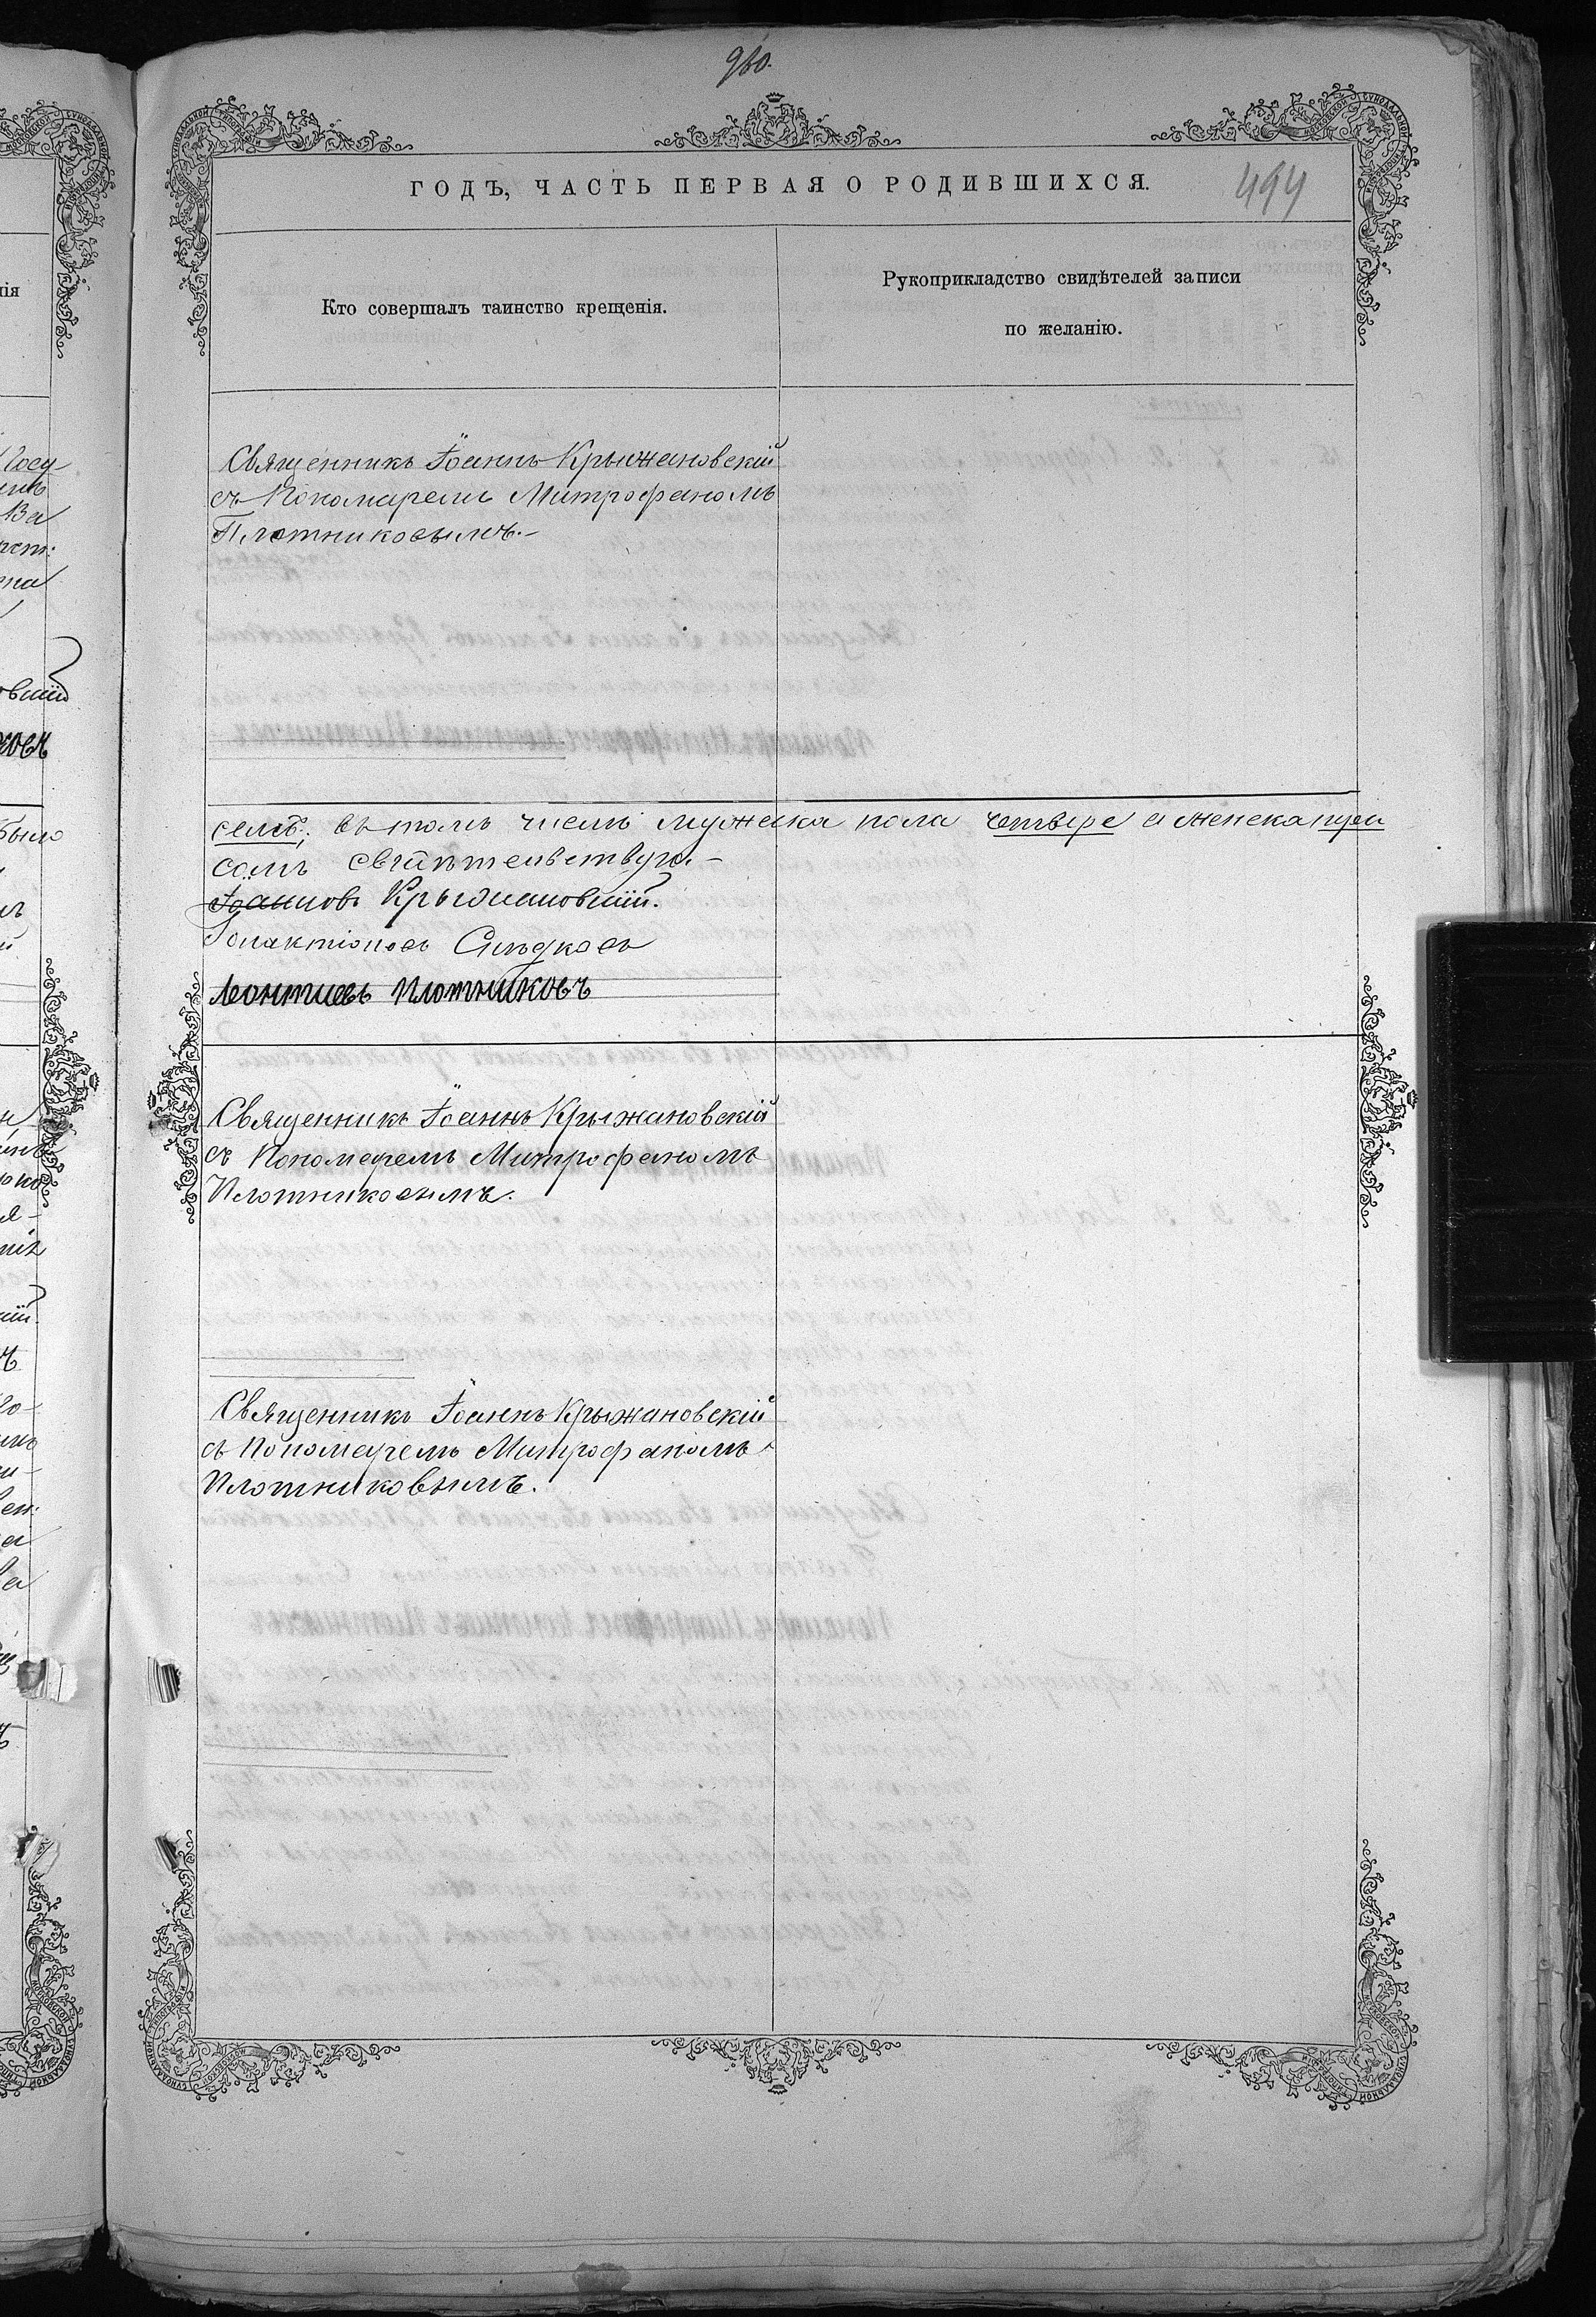 960.
ГОДЪ, ЧАСТЬ ПЕРВАЯ О РОДИВШИХСЯ.
494
Кто совершалъ таинство крещенія.
Рукоприкладство свидѣтелей записи
по желанію.
Священникъ Іоаннъ Крыжановскій
съ Пономаремъ Митрофаномъ
Плотниковымъ.-
семь; въ томъ числѣ мужеска пола четверо а женска три
самъ свидѣтельствую.-
Іоанновъ Крыжановскій.
Слѣдковъ
Леонтиевъ Плотниковъ
Священникъ Іоаннъ Крыжановскій
съ Пономаремъ Митрофаномъ
Плотниковымъ.
Священникъ Іоаннъ Крыжановскій
съ Пономаремъ Митрофаномъ
Плотниковымъ.